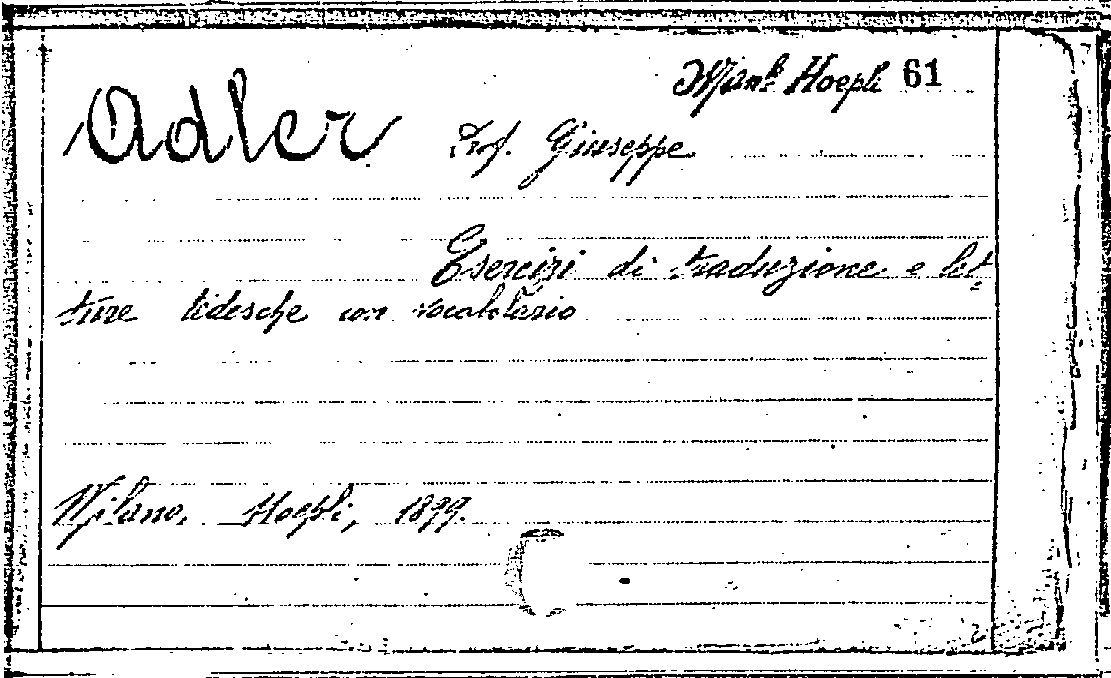 Man.le Hoepli 61
Adler Prof. Giuseppe
Esercizi di traduzione e let-
ture tedesche con vocabolario
Milano, Hoepli, 1899.